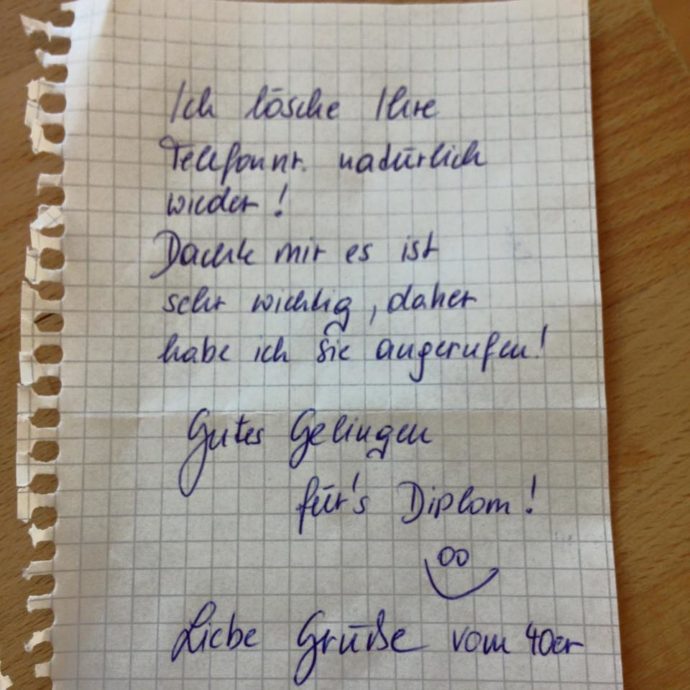 Ich lösche Ihre
Telefonnr. natürlich
wieder!
Dachte mir es ist
sehr wichtig, daher
habe ich Sie angerufen!
Gutes Gelingen
für's Diplom!
Liebe Grüße vom 40er